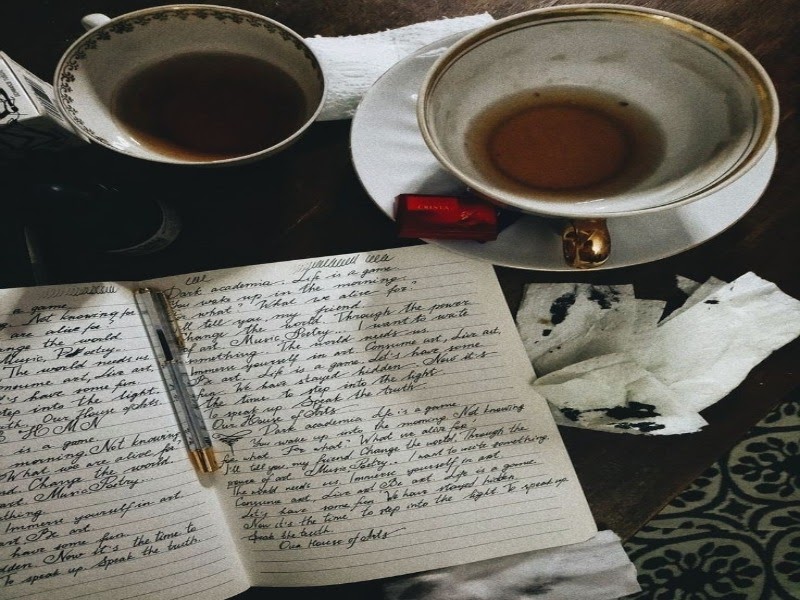 CRISTA
a game
Not knowing for
are alive for?
the world
Music, Poetry
The world needs us
consume art, Live art,
Let's have some fun
step into the light
Our House of Arts
H M N
is a game
morning. Not knowing
What we are alive for
Change the world
art Music Poetry...
thing
Immerse yourself in art
art Be art
have some fun
Now it's the time to
to speak up Speak the truth.
Dark academia. Life is a game
You wake up in the morning.
for what? What we alive for?
I'll tell you, my friend
Change the World Through the power
of art Music Poetry... I want to write
something. The world needs us
Immerse yourself in art Consume art, Live art,
Be art Life is a game Let's have some
fun. We have stayed hidden Now it's
the time to step into the light
To speak up Speak the truth
Our House of Arts
Dark academia Life is a game
You wake up into the morning Not knowing
for what. For what? What we alive for
I'll tell you, my friend Change the world Through the
power of art Music Poetry... I want to write something
The world needs us. Immerse yourself in art
Consume art, Live art Be art Life is a game
Let's have some fun We have stayed hidden
Now it's the time. To step into the light To speak up
Speak the truth
Our House of Arts